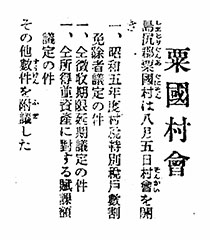 粟國村會
島尻郡粟國村は八月五日村會を開
き
一、昭和五年度村税特別税戸數割
免除者議定の件
一、全徴收期限延期議定の件
一、全所得重資産に對する賦課額
議定の件
その他數件を附議した